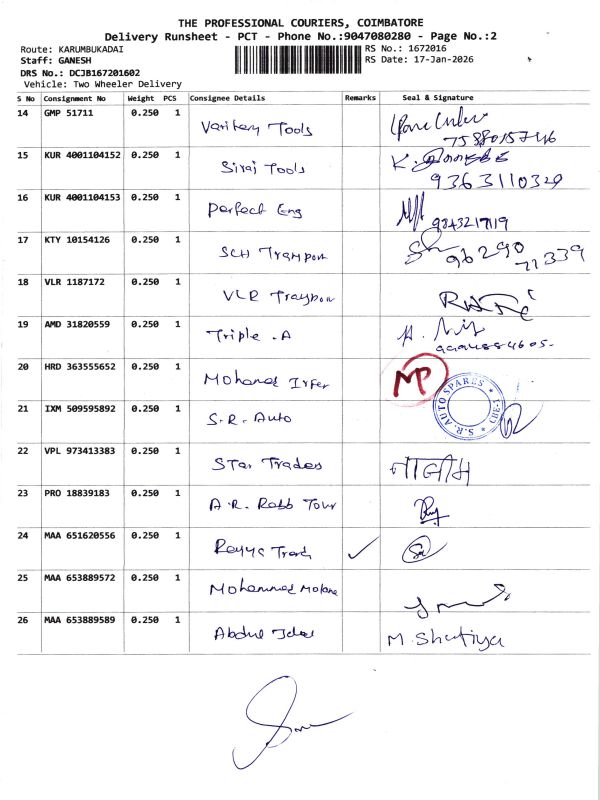 THE PROFESSIONAL COURIERS, COIMBATORE
Delivery Runsheet - PCT - Phone No.:9047080280 - Page No.:2
Route: KARUMBUKADAI RS No.: 1672016
Staff: GANESH RS Date: 17-Jan-2026
DRS No.: DCJB167201602
Vehicle: Two Wheeler Delivery
S No Consignment No Weight PCS Consignee Details Remarks Seal & Signature
14 GMP 51711 0.250 1 Tools
7588015746
15 KUR 4001104152 0.250 1 Siraj Tools K.
9363110329
16 KUR 4001104153 0.250 1 Perfect Eng
9843217119
17 KTY 10154126 0.250 1 SCH 96290
71339
18 VLR 1187172 0.250 1 VLR
19 AMD 31820559 0.250 1 Triple .A
20 HRD 363555652 0.250 1 Mohamed MP
21 IXM 509595892 0.250 1 S.R. Auto S.R. AUTO SPARES
22 VPL 973413383 0.250 1 Star Trades
23 PRO 18839183 0.250 1 A.R. Tour
24 MAA 651620556 0.250 1
25 MAA 653889572 0.250 1 Mohammed
26 MAA 653889589 0.250 1 Abdul M. Shafiya